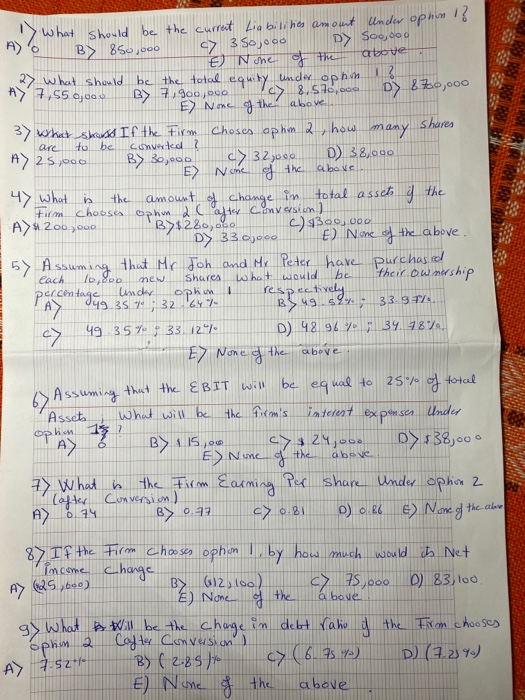 1) What should be the current Liabilities amount Under option 1?
A) 0 B) 850,000 C) 350,000 D) 500,000
E) None of the above.
2) What should be the total equity under option 1?
A) 7,550,000 B) 7,900,000 C) 8,570,000 D) 8,750,000
E) None of the above.
3) If the Firm choses option 2, how many shares
are to be converted?
A) 25,000 B) 30,000 C) 32,000 D) 38,000
E) None of the above.
4) What is the amount of change in total assets if the
Firm chooses option 2 (after Conversion)
A) $200,000 B) $280,000 C) $300,000
D) 330,000 E) None of the above.
5) Assuming that Mr Joh and Mr Peter have purchased
each 10,000 new shares what would be their ownership
percentage under option 1 respectively
A) 49.35%; 32.64% B) 49.58%; 33.97%.
C) 49.35%; 33.12% D) 48.96%; 34.78%.
E) None of the above.
6) Assuming that the EBIT will be equal to 25% of total
Assets, What will be the firm's interest expenses Under
option 1?
A) 0 B) $15,000 C) $24,000 D) $38,000
E) None of the above.
7) What is the Firm Earning Per share Under option 2
(after Conversion)
A) 0.74 B) 0.77 C) 0.81 D) 0.86 E) None of the above
8) If the Firm chooses option 1, by how much would its Net
income change
A) (25,600) B) (12,100) C) 75,000 D) 83,100
E) None of the above
9) What Will be the change in debt ratio if the Firm chooses
option 2 (after Conversion)
A) 7.52% B) (2.85)% C) (6.75%) D) (7.25%)
E) None of the above